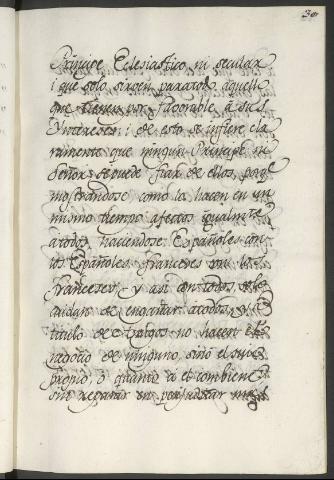 30
Principe Eclesiastico, ni secular
i que solo sirven para todo aquello
que tienen por favorable á sus
Yntereses; i de esto se infiere cla
ramente que ningun Principe ni
Señor se puede fiar de ellos, porq
mostrandose como lo hacen en un
mismo tiempo afectos igualmte
á todos, haciendose Españoles con
los Españoles, franceses con los
franceses, y asi con todos,
cuidan de engañar á todos, y
titulo de no hacen el
negocio de ninguno, sino el suyo
proprio, o quanto á el combiene
sin reparar en perjudicar